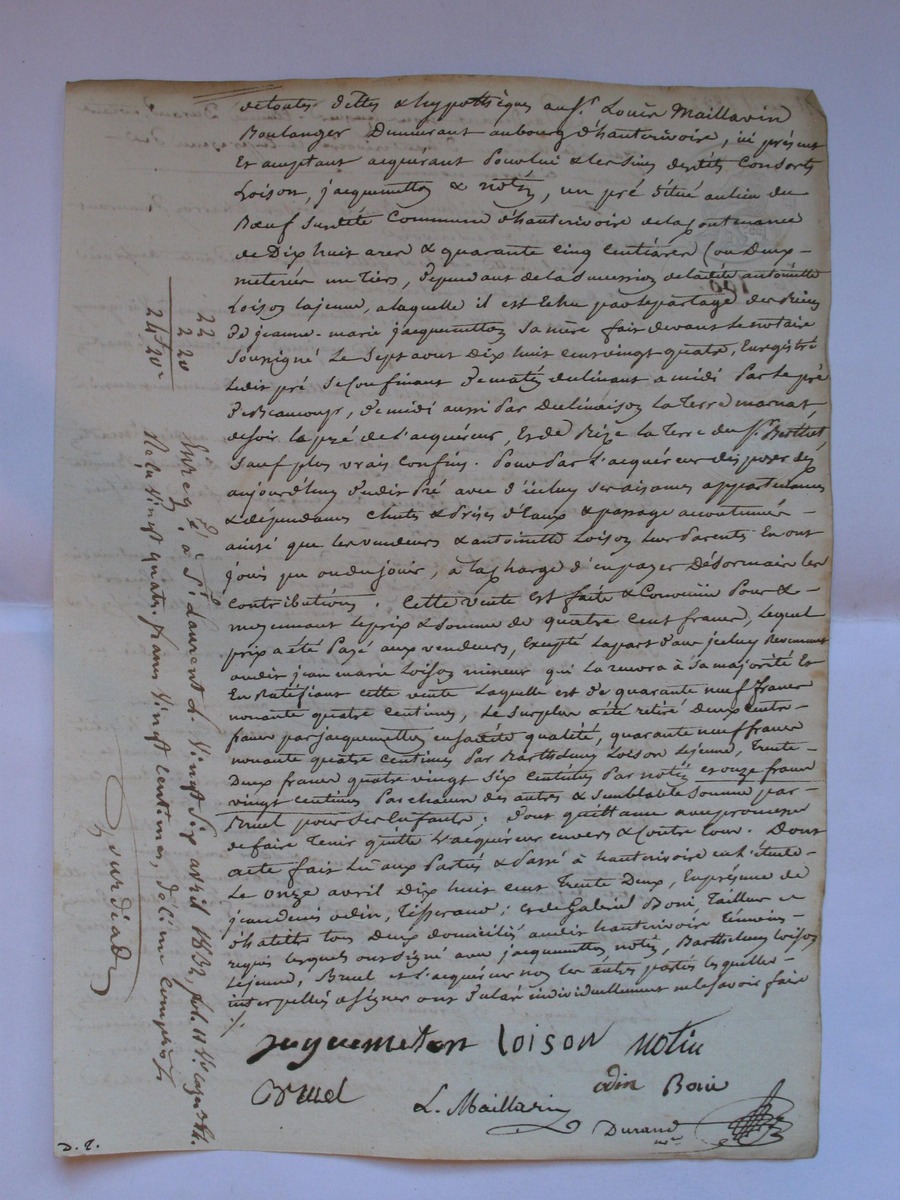 de toutes dettes & hypothèques au Sr. Louis Maillavin
Boulanger Demeurant au bourg d'hauterivoire, ici présent
Et acceptant acquérant Pour lui & les siens desdits Consorts
Loison, jacquemetton & notin, un pré situé au lieu du
Bœuf sur dite Commune d'hauterivoire de la Contenance
de Dix huit ares & quarante cinq Centiares (ou Deux
meterées un tiers, Dependant de la succession de la dite antoinette
Loison la jeune, a laquelle il est Echu par le partage des Biens
De jeanne-marie jacquemetton sa mère fait devant le notaire
Soussigné Le Sept aout Dix huit cent vingt quatre, Enregistré
Ledit pré Se Confinant De matin a midi Par le pré
De midi aussi Par la Terre
de soir la pré de l'acquéreur, Et de Bize la Terre du Sr. Berthet
Sauf plus vrais Confins. Pour Par l'acquéreur disposer dès
aujourd'huy Dudit Pré avec d'iceluy ses aisances appartenances
& dépendances Chutes & Prises d'Eaux & passage accoutumés
ainsi que les vendeurs & antoinette Loison leur Parente En ont
joui pu ou du jouir, à la charge d'en payer Désormais les
Contributions. Cette vente Est faite & Convenue Pour &
moyennant Le prix & Somme de quatre Cent francs, Lequel
prix a été Payé aux vendeurs, Excepté la part d'un iceluy Revenant
audit jean marie Loison mineur qui La recevra à sa majorité Et
En Ratifiant cette vente Laquelle est De quarante neuf francs
nonante quatre Centimes, Le Surplus a été retiré Deux cents
francs par jacquemetton en sa dite qualité, quarante neuf francs
nonante quatre Centimes par Barthelemy Loison Lejeune, Trente
Deux francs quatre vingt Six Centimes Par notin et onze francs
vingt Centimes Par chacun des autres & Semblable Somme par
Bruel pour Ses Enfants; Dont quittance avec promesse
de faire Tenir quitte L'acquéreur envers & Contre tous. Dont
acte fait Lu aux Parties & Passé à hauterivoire en l'étude
Le onze avril Dix huit cent Trente Deux, En présence de
jean denis odin, Tisserand; et de Gabriel Boni Tailleur
d'habits tous Deux domiciliés audit hauterivoire Témoins
requis lesquels ont Signé avec jacquemetton notin, Barthelemy Loison
Lejeune, Bruel et L'acquéreur non les autres parties lesquelles
interpellées de signer ont Déclaré individuellement ne le savoir faire
jacquemeton Loison notin
Bruel odin Boni
L. Maillavin
Durand nre
22
2 20
24f 20c
Enregé à St. Laurent le vingt six avril 1832, fol. 11
Reçu vingt quatre francs vingt centimes, décime compris
Jourdiad
D. T.